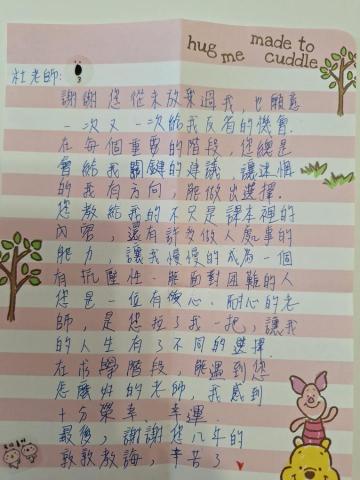 hug me
made to cuddle
杜老師:
謝謝您從未放棄過我,也願意
一次又一次給我反省的機會.
在每個重要的階段,您總是
會給我關鍵的建議,讓迷惘
的我有方向,能做出選擇.
您教給我的不只是課本裡的
內容,還有許多做人處事的
能力,讓我慢慢的成為一個
有抗壓性.能面對困難的人
您是一位有愛心.耐心的老
師,是您拉了我一把,讓我
的人生有了不同的選擇.
在求學階段,能遇到您
怎麼好的老師,我感到
十分榮幸.幸運.
最後,謝謝您几年的
敦敦教誨,辛苦了